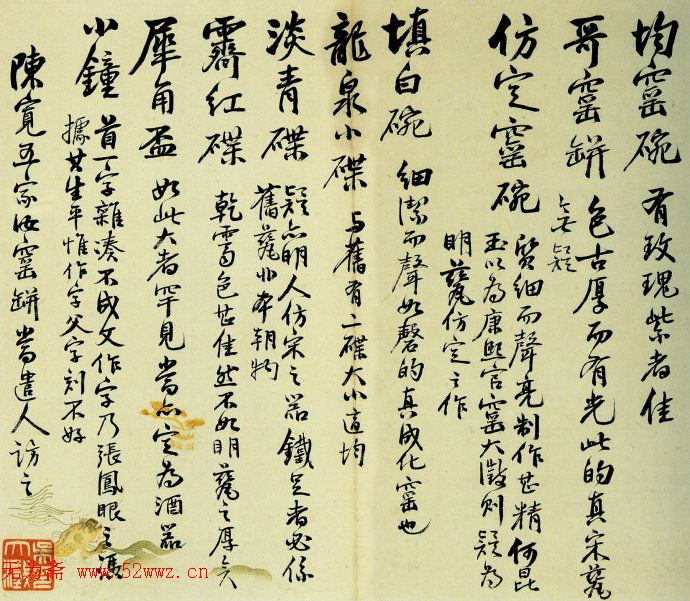 均窰碗 有玫瑰紫者佳
哥窰缾 色古厚而有光此的真宋甆
無疑
仿定窰碗 質細而聲亮制作甚精何昆
玉以為康熙官窰大澂則疑為
明甆仿定之作
填白碗 細潔而聲如磬的真成化窰也
龍泉小碟 与舊有二碟大小適均
淡青碟 疑亦明人仿宋之器鐵足者必係
舊甆非本朝物
霽红碟 乾霽色甚佳然不如明甆之厚矣
犀角盃 如此大者罕見當亦定為酒器
小鐘 首丁字雜湊不成文作字乃張鳳眼之偽
據其生平惟作字父字刻不好
陳寬吾家汝窰缾當遣人訪之
无为斋 www.52wwz.cn